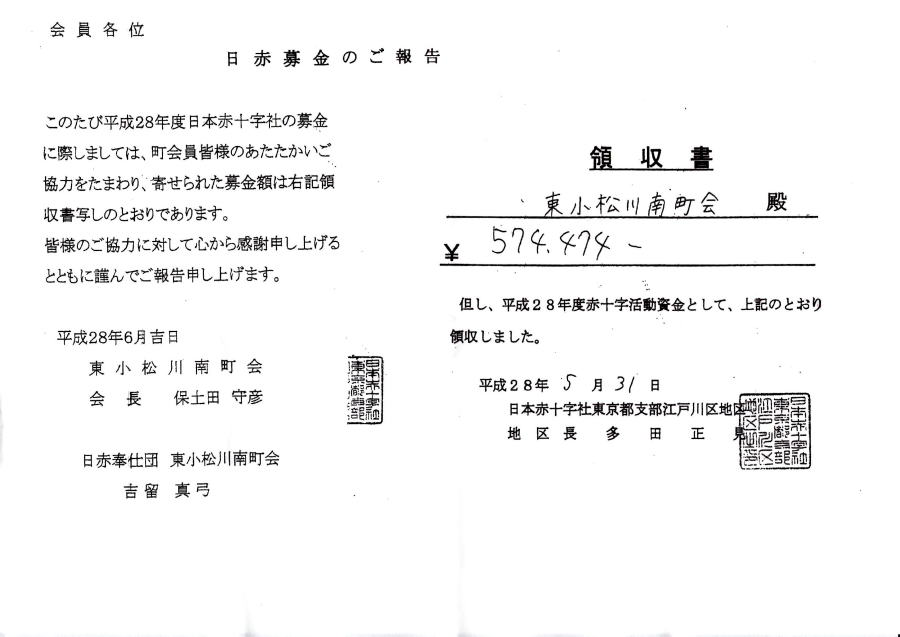 会員各位
日赤募金のご報告
このたび平成28年度日本赤十字社の募金
に際しましては、町会員皆様のあたたかいご
協力をたまわり、寄せられた募金額は右記領
収書写しのとおりであります。
皆様のご協力に対して心から感謝申し上げる
とともに謹んでご報告申し上げます。
平成28年6月吉日
東小松川南町会
会長 保土田 守彦
日赤奉仕団 東小松川南町会
吉留 真弓
領収書
東小松川南町会 殿
¥ 574.474 –
但し、平成28年度赤十字活動資金として、上記のとおり
領収しました。
平成28年 5 月 31 日
日本赤十字社東京都支部江戸川区地区
地区長 多田正見